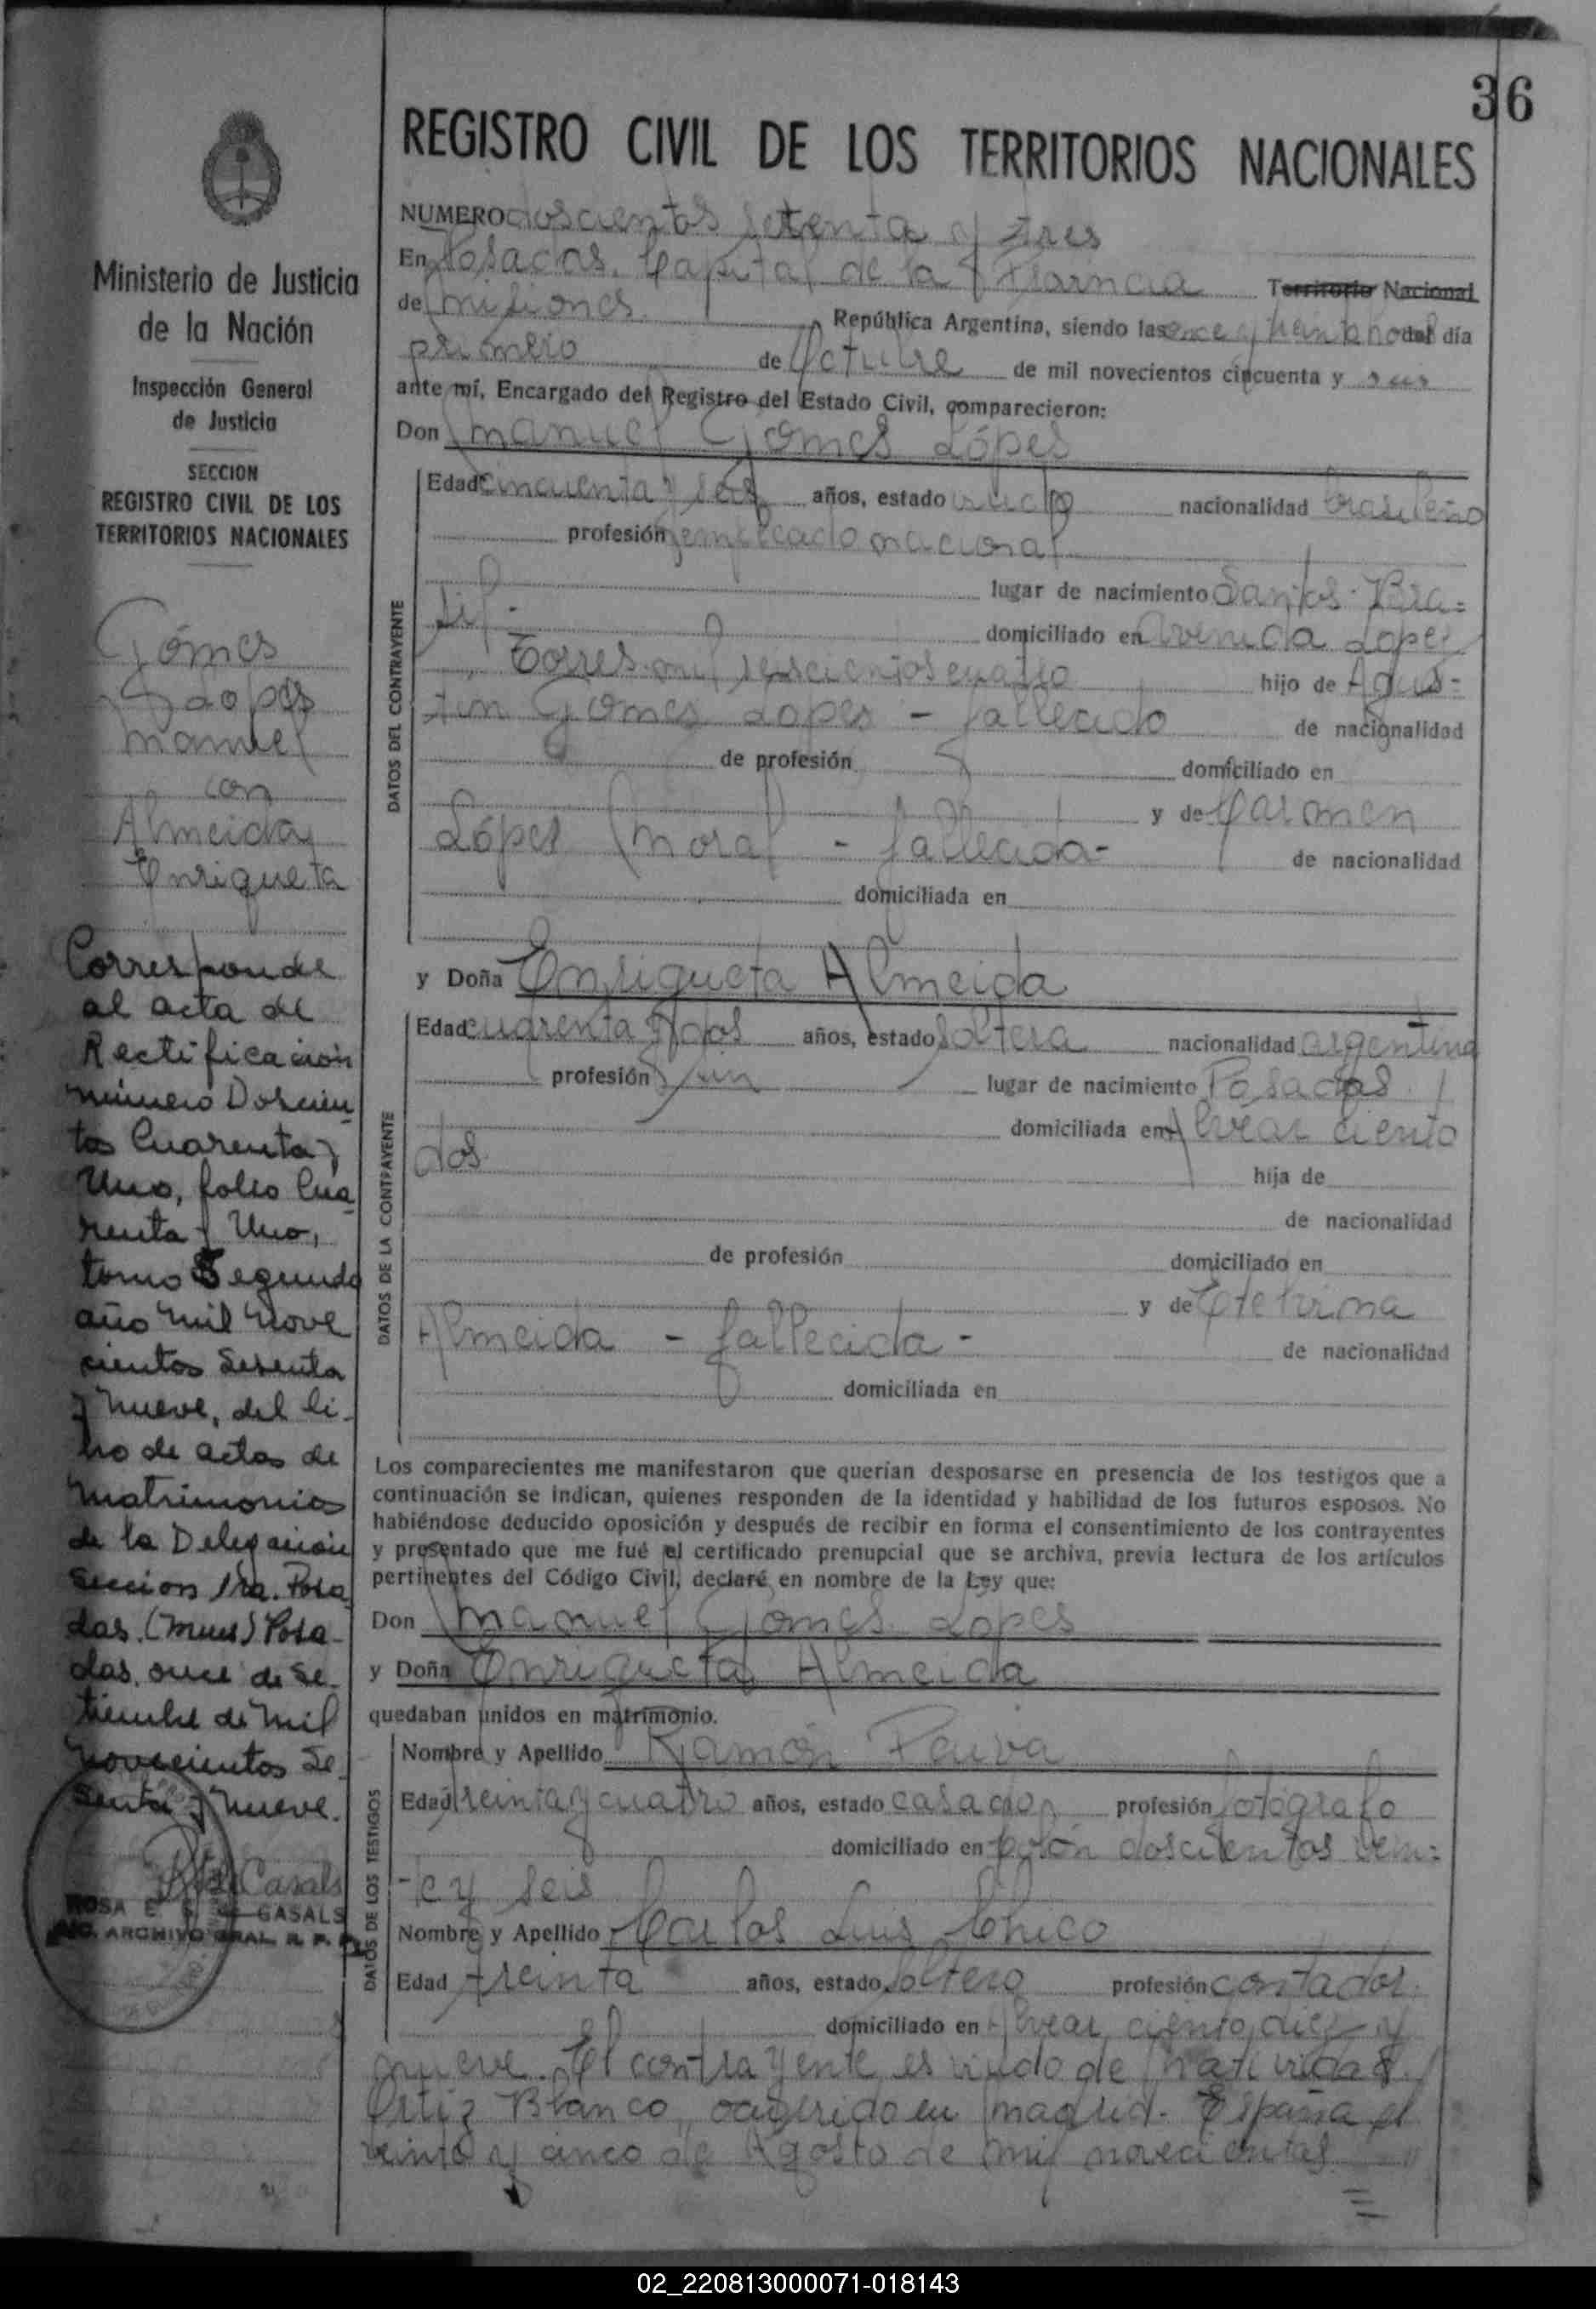 36
REGISTRO CIVIL DE LOS TERRITORIOS NACIONALES
Ministerio de Justicia
de la Nación
Inspección General
de Justicia
SECCION
REGISTRO CIVIL DE LOS
TERRITORIOS NACIONALES
Gómes
Lopes
Manuel
con
Almeida
Enriqueta
Corresponde
al acta de
Rectificación
número Doscien
tos Cuarenta y
Uno, folio Cua
renta y Uno,
tomo Segundo
año mil nove
cientos sesenta
y nueve, del li-
bro de actas de
Matrimonios
de la Delegación
Sección 1ra. Posa
das. (Mnes) Posa-
das, once de Se-
tiembre de mil
novecientos se
senta y nueve.
Casals
ROSA E. CASALS
ARCHIVO GRAL. R. P.
NUMERO doscientos setenta y tres
En Posadas, Capital de la Provincia Territorio Nacional
de Misiones República Argentina, siendo las once y treinta horas del día
primero de Octubre de mil novecientos cincuenta y seis
ante mí, Encargado del Registro del Estado Civil, comparecieron:
Don Manuel Gomes Lópes
DATOS DEL CONTRAYENTE
Edad cincuenta y seis años, estado viudo nacionalidad brasileño
profesión empleado nacional
lugar de nacimiento Santos-Bra=
sil- domiciliado en Avenida Lopes
Torres mil seiscientos cuatro hijo de Agus=
tin Gomes Lopes - fallecido de nacionalidad
de profesión domiciliado en
y de Carmen
Lópes Moral - fallecida- de nacionalidad
domiciliada en
y Doña Enriqueta Almeida
DATOS DE LA CONTRAYENTE
Edad cuarenta y dos años, estado soltera nacionalidad argentina
profesión sin lugar de nacimiento Posadas
domiciliada en Alvear ciento
dos hija de
de nacionalidad
de profesión domiciliado en
y de Etelvina
Almeida - fallecida - de nacionalidad
domiciliada en
Los comparecientes me manifestaron que querían desposarse en presencia de los testigos que a
continuación se indican, quienes responden de la identidad y habilidad de los futuros esposos. No
habiéndose deducido oposición y después de recibir en forma el consentimiento de los contrayentes
y presentado que me fué el certificado prenupcial que se archiva, previa lectura de los artículos
pertinentes del Código Civil, declaré en nombre de la Ley que:
Don Manuel Gomes Lopes
y Doña Enriqueta Almeida
quedaban unidos en matrimonio.
DATOS DE LOS TESTIGOS
Nombre y Apellido Ramón Paiva
Edad treinta y cuatro años, estado casado profesión fotógrafo
domiciliado en Colón doscientos vein=
te y seis
Nombre y Apellido Carlos Luis Chico
Edad treinta años, estado soltero profesión contador
domiciliado en Alvear ciento diez y
nueve. El contrayente es viudo de Natividad
Ortiz Blanco, ocurrido en Madrid- España el
veinte y cinco de Agosto de mil novecientos
02_220813000071-018143